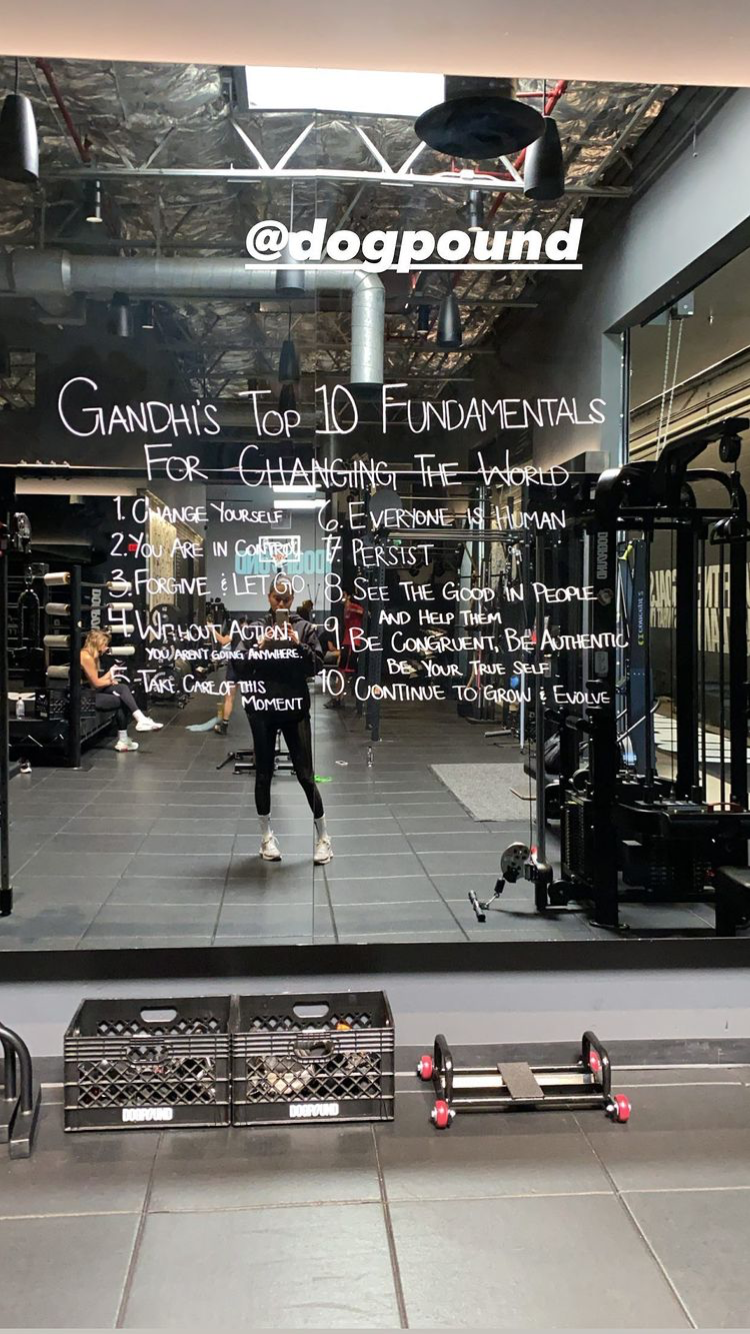 @dogpound
GANDHI'S TOP 10 FUNDAMENTALS
FOR CHANGING THE WORLD
1. CHANGE YOURSELF
2. YOU ARE IN CONTROL
3. FORGIVE & LET GO
4. WITHOUT ACTION
YOU AREN'T GOING ANYWHERE.
5. TAKE CARE OF THIS
MOMENT
6. EVERYONE IS HUMAN
7. PERSIST
8. SEE THE GOOD IN PEOPLE
AND HELP THEM
9. BE CONGRUENT, BE AUTHENTIC
BE YOUR TRUE SELF
10. CONTINUE TO GROW & EVOLVE
DOGPOUND
DOGPOUND
DOGPOUND
DOGPOUND